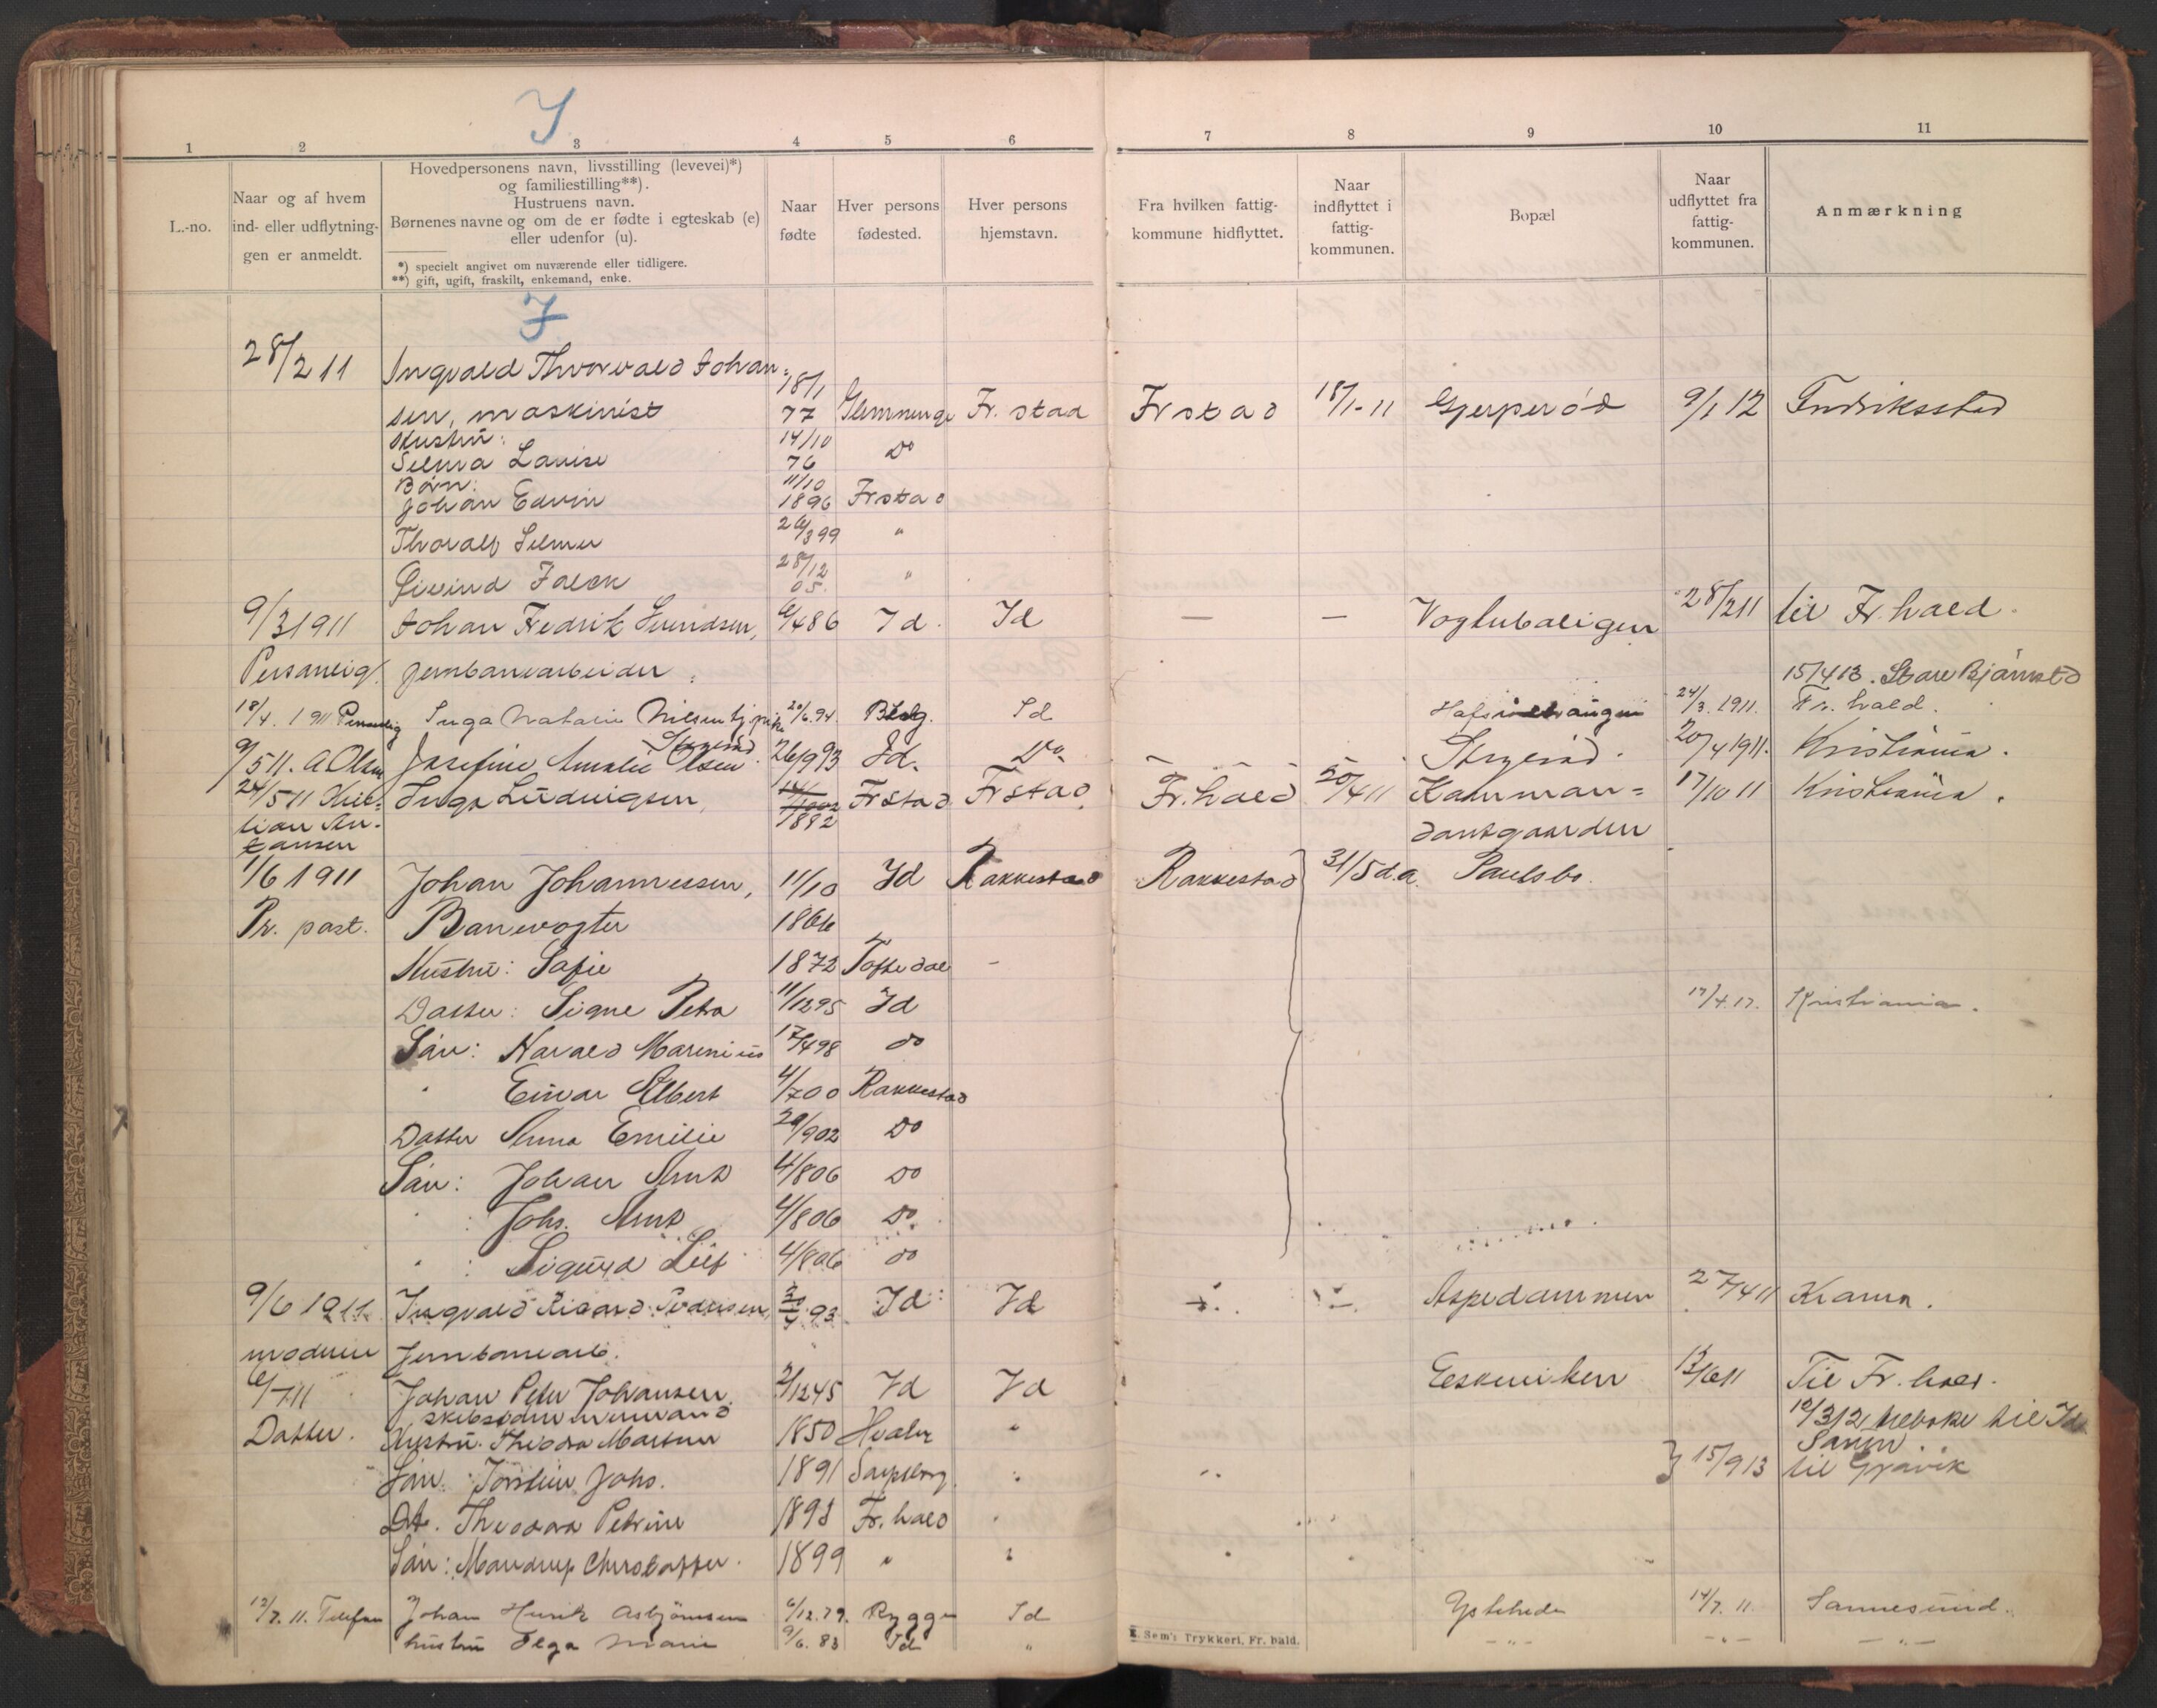 J
1 2 3 4 5 6 7 8 9 10 11
L.-no.
Naar og af hvem
ind- eller udflytnin-
gen er anmeldt.
Hovedpersonens navn, livsstilling (levevei)*)
og familiestilling**).
Hustruens navn.
Børnenes navne og om de er fødte i egteskab (e)
eller udenfor (u).
*) specielt angivet om nuværende eller tidligere.
**) gift, ugift, fraskilt, enkemand, enke.
Naar
fødte
Hver persons
fødested.
Hver persons
hjemstavn.
Fra hvilken fattig-
kommune hidflyttet.
Naar
indflyttet i
fattig-
kommunen.
Bopæl
Naar
udflyttet fra
fattig-
kommunen.
Anmærkning
J
28/2 11 Ingvald Thorvald Johan-
sen, maskinist 18/1 77 Glemminge Fr.stad Frstad 18/1-11 Gjerperød 9/1 12 Fredriksstad
Hustru:
Selma Lovise 14/10 76 Do
Børn:
Johan Edvin 11/10 1896 Frstad
Thoralf Selmer 26/3 99 "
Øivind Falck 28/12 05. "
9/3 1911 Johan Fredrik Svendsen, 6/4 86 Id. Id — — Vogterboligen 28/2 11 til Fr.hald.
Personlig. jernbanearbeider 15/4 13.
18/4. 1911 Personlig Inga Natalie Nilsen tj.pike 20/6.94. Id 24/3. 1911. Fr. hald.
9/5 11. A Olsen Josefine Amalie Olsen 26/9 93 Id. Do Strerød. 20/4 1911. Kristiania.
24/5 11 Kris-
tian An-
tonsen
Inga Ludvigsen, 1892 Frstad Frstad. Fr.hald 20/4 11 Komman-
dantgaarden 17/10 11 Kristiania.
1/6 1911 Johan Johannessen, 11/10 Id Rakkestad Rakkestad 31/5 d.a. Paulsbo.
Pr. post. Banevogter 1866
Hustru: Sofie 1872 Toftedal -
Datter: Signe Petra 11/12 95 Id 17/4.17. Kristiania.
Søn: Harald Marenius 17/4 98 do
" Einar Albert 4/7 00 Rakkestad
Datter Anna Emilie 20/9 02 Do
Søn: Johan Arnt 4/8 06 Do
" : Johs. Arnt 4/8 06 Do.
" : Sigurd Leif 4/8 06 do
9/6 1911. Ingvald Rikard Pedersen, 93 Id Id Aspedammen 27/4 11 Krania.
moderen Jernbanearb.
6/7 11 Johan Peter Johansen 2/12 45 Id Id Eskeviken 13/6 11 Til Fr.hald.
skibstømmermand
Datter. Hustru. Theodora Martine 1850 Hvaler " 10/3 12 tilbake til Id
Søn: Torstein Johs. 1891 Sarpsborg } 15/9 13 til Gjøvik
Dt. Theodora Petrine 1893 Fr.hald "
Søn: Mandrup Christoffer. 1899 " "
12/7. 11. Telefon Johan Henrik Asbjørnsen 6/12.79. Rygge Id Ystehede 14/7. 11. Sannesund.
hustru Olga Marie 9/6. 83 Id " —"— —"— —"—
E. Sem's Trykkeri, Fr.hald.